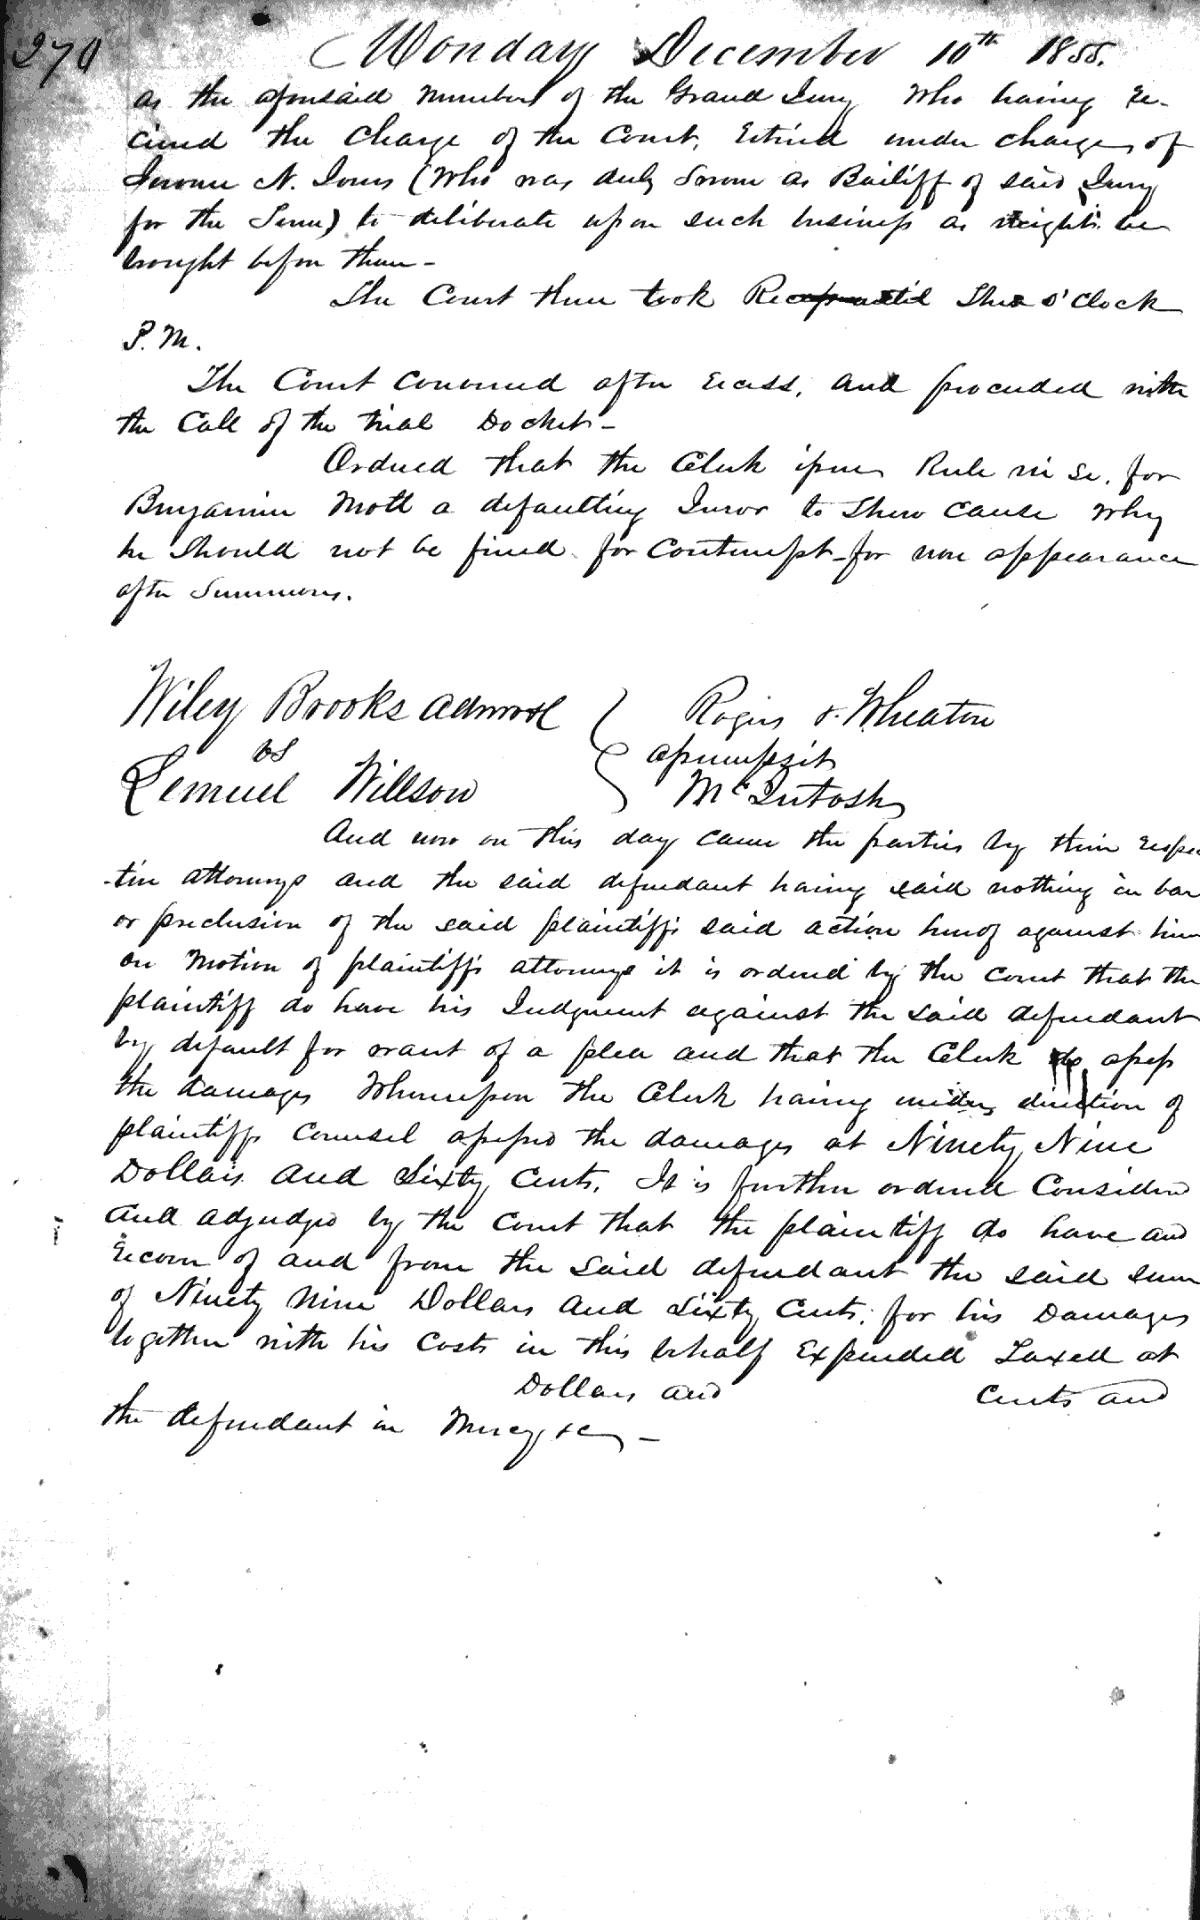 270 Monday December 10th 1855.
as the aforesaid Members of the Grand Jury Who having re-
cieved the Charge of the Court, retired under charge of
Jerome N. Jones (Who was duly Sworn as Bailiff of said Jury
for the Term) to deliberate upon such business as might be
brought before them -
The Court then took Recess until Three o'Clock
P.M.
The Court convened after recess, and proceeded with
the Call of the trial Docket -
Ordered that the Clerk issue Rule ni si. for
Benjamin Mott a defaulting Juror to Shew cause Why
he Should not be fined for Contempt - for non appearance
after Summons.
Wiley Brooks Admr { Rogers & Wheaton
vs assumpsit
Lemuel Willson McIntosh
And now on this day came the parties by their respec
-tive attorneys and the said defendant having said nothing in bar
or preclusion of the said plaintiffs said action hereof against him
on Motion of plaintiffs attorneys it is ordered by the court that the
plaintiff do have his Judgment against the said defendant
by default for want of a plea and that the Clerk do assess
the damages Whereupon the Clerk having under direction of
plaintiffs counsel assessed the damages at Ninety Nine
Dollars and Sixty Cents, It is further ordered Considered
And adjudged by the court that the plaintiff do have and
recover of and from the said defendant the said sum
of Ninety Nine Dollars And Sixty Cents. for his Damages
together with his Costs in this behalf Expended Taxed at
Dollars and Cents and
the defendant in Mercy &c -